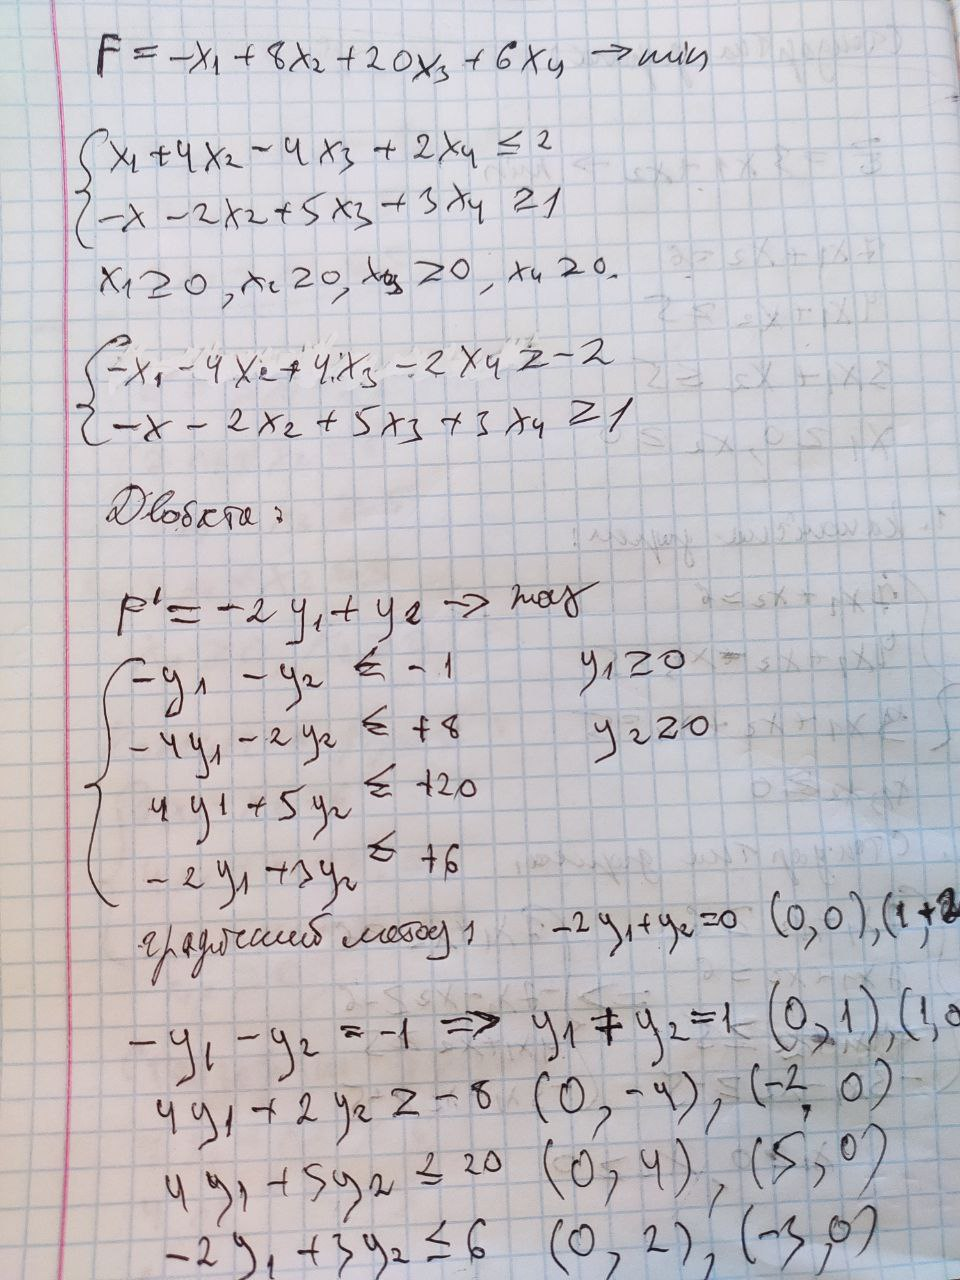 F = -x₁ + 8x₂ + 20x₃ + 6x₄ → min
x₁ + 4x₂ - 4x₃ + 2x₄ ≤ 2
-x - 2x₂ + 5x₃ + 3x₄ ≥ 1
x₁ ≥ 0, x₂ ≥ 0, x₃ ≥ 0, x₄ ≥ 0.
-x₁ - 4x₂ + 4x₃ - 2x₄ ≥ -2
-x - 2x₂ + 5x₃ + 3x₄ ≥ 1
F' = -2y₁ + y₂ → max
-y₁ - y₂ ≤ -1 y₁ ≥ 0
-4y₁ - 2y₂ ≤ +8 y₂ ≥ 0
4y1 + 5y₂ ≤ +20
-2y₁ + 3y₂ ≤ +6
метод -2y₁ + y₂ = 0 (0, 0), (1, +2
-y₁ - y₂ = -1 => y₁ + y₂ = 1 (0, 1), (1, 0
4y₁ + 2y₂ ≥ -8 (0, -4), (-2, 0)
4y₁ + 5y₂ ≤ 20 (0, 4), (5, 0)
-2y₁ + 3y₂ ≤ 6 (0, 2), (-3, 0)